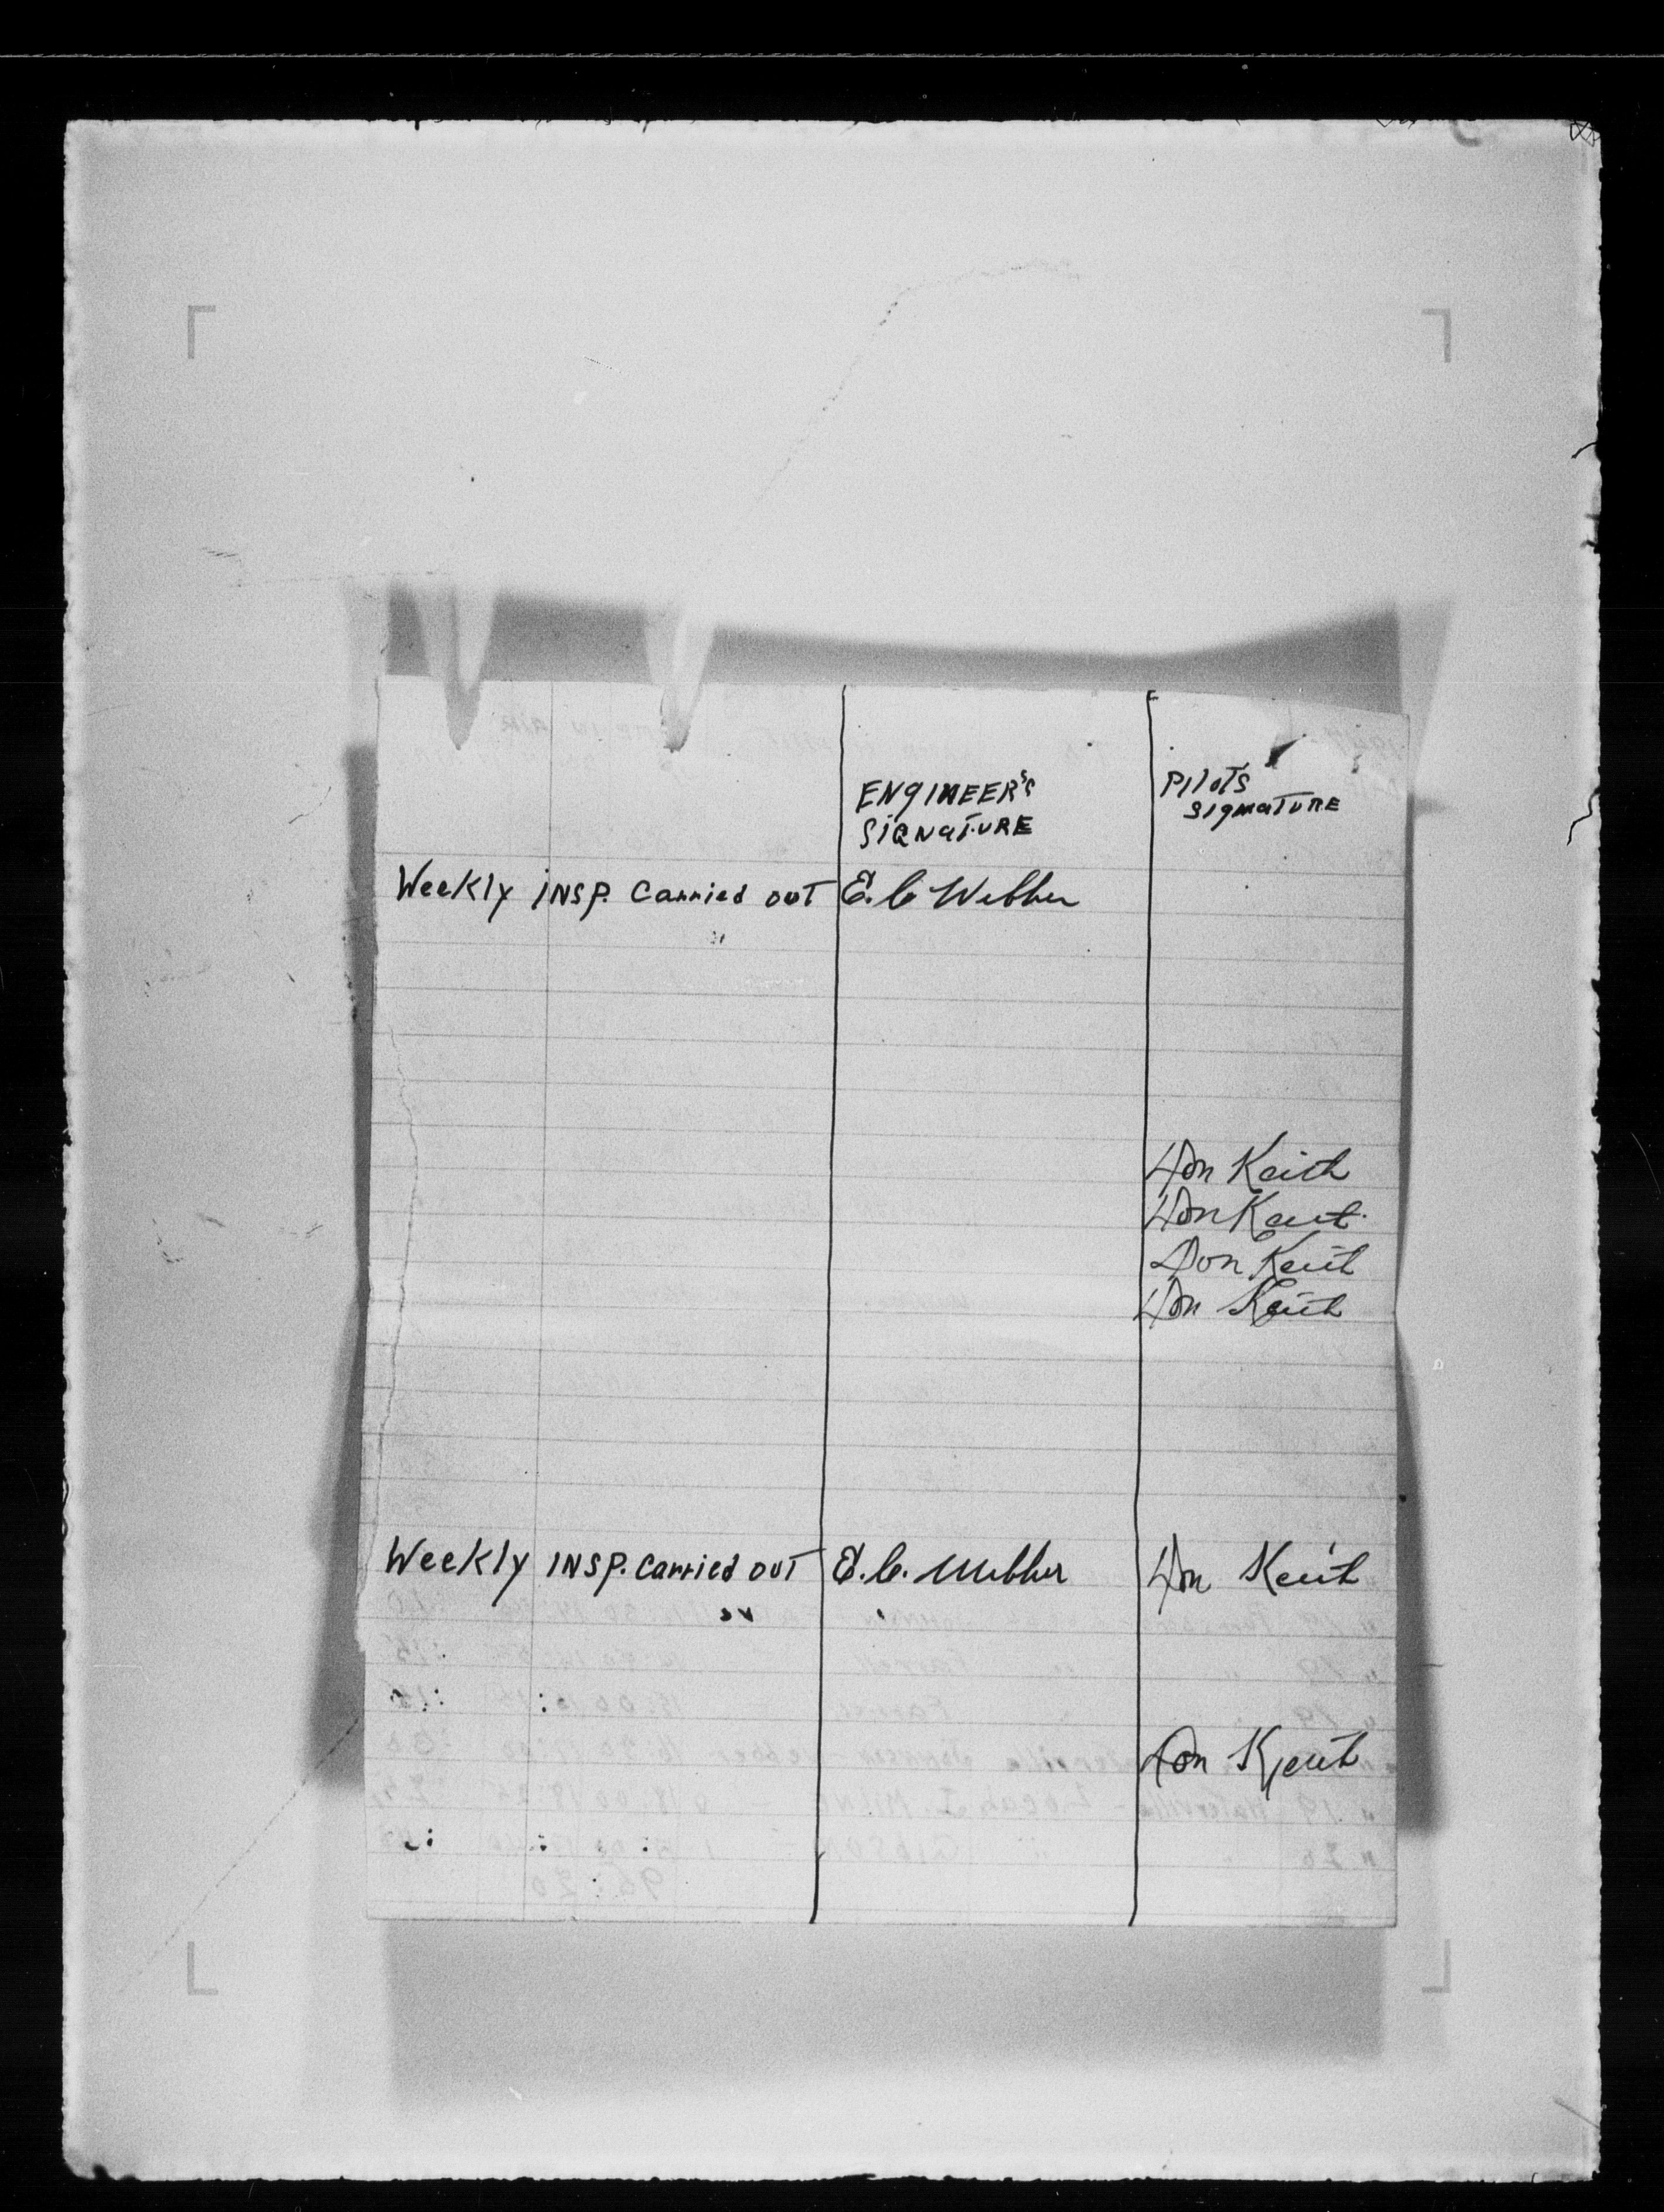 ENGINEER'S
SIGNATURE
PILOTS
SIGNATURE
Weekly INSP. Carried OUT E. C. Webber
Don Keith
Don Keith
Don Keith
Don Keith
Weekly INSP. Carried OUT E. C. Webber Don Keith
Don Keith